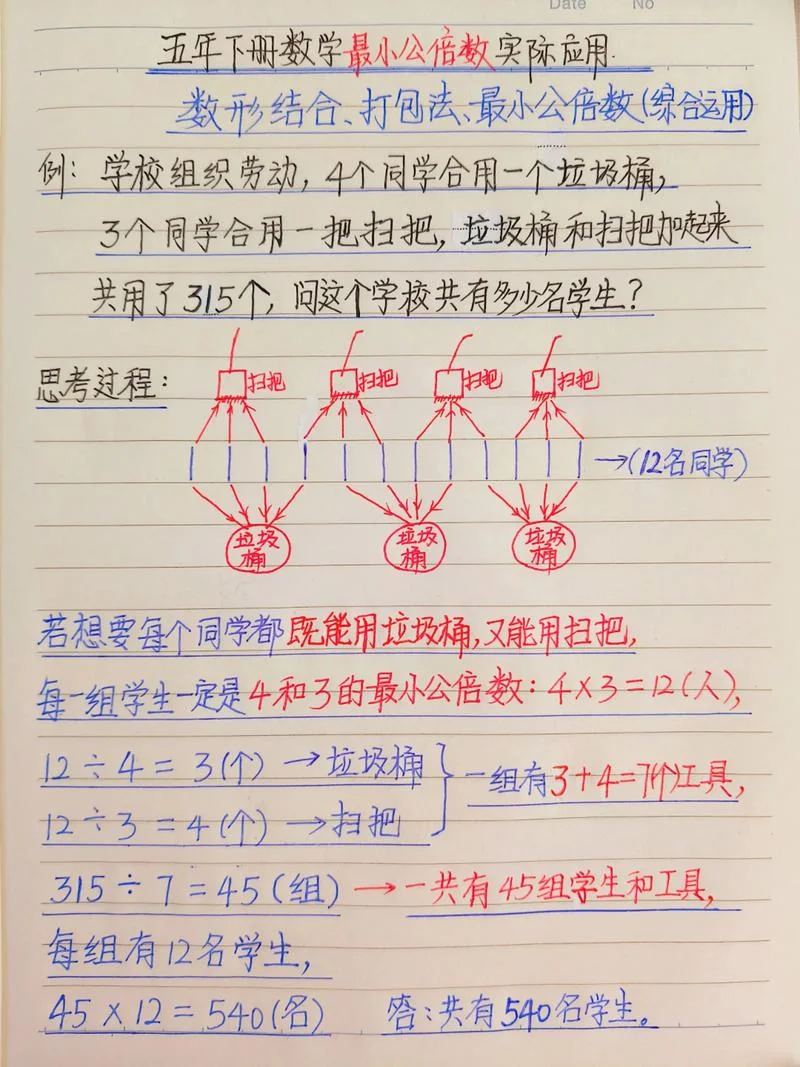 Date No
五年下册数学最小公倍数实际应用.
数形结合、打包法、最小公倍数(综合运用)
例：学校组织劳动，4个同学合用一个垃圾桶，
3个同学合用一把扫把，垃圾桶和扫把加起来
共用了315个，问这个学校共有多少名学生？
思考过程：
扫把 扫把 扫把 扫把
→(12名同学)
垃圾桶 垃圾桶 垃圾桶
若想要每个同学都既能用垃圾桶，又能用扫把，
每一组学生一定是4和3的最小公倍数：4×3=12(人)，
12÷4=3(个)→垃圾桶
12÷3=4(个)→扫把
一组有3+4=7(个)工具，
315÷7=45(组)→一共有45组学生和工具，
每组有12名学生，
45×12=540(名) 答：共有540名学生。